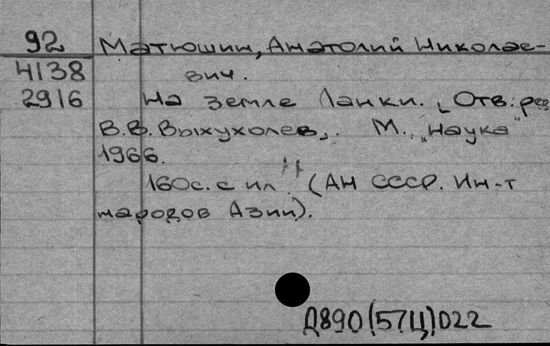 92 Матюшин, Анатолий Николае-
4138 вич.
2916 На земле Ланки. Отв. ред.
В.В. Выхухолев, М., "Наука"
1966.
160с. с ил. (АН СССР. Ин-т
народов Азии).
Д890(57Ц)022